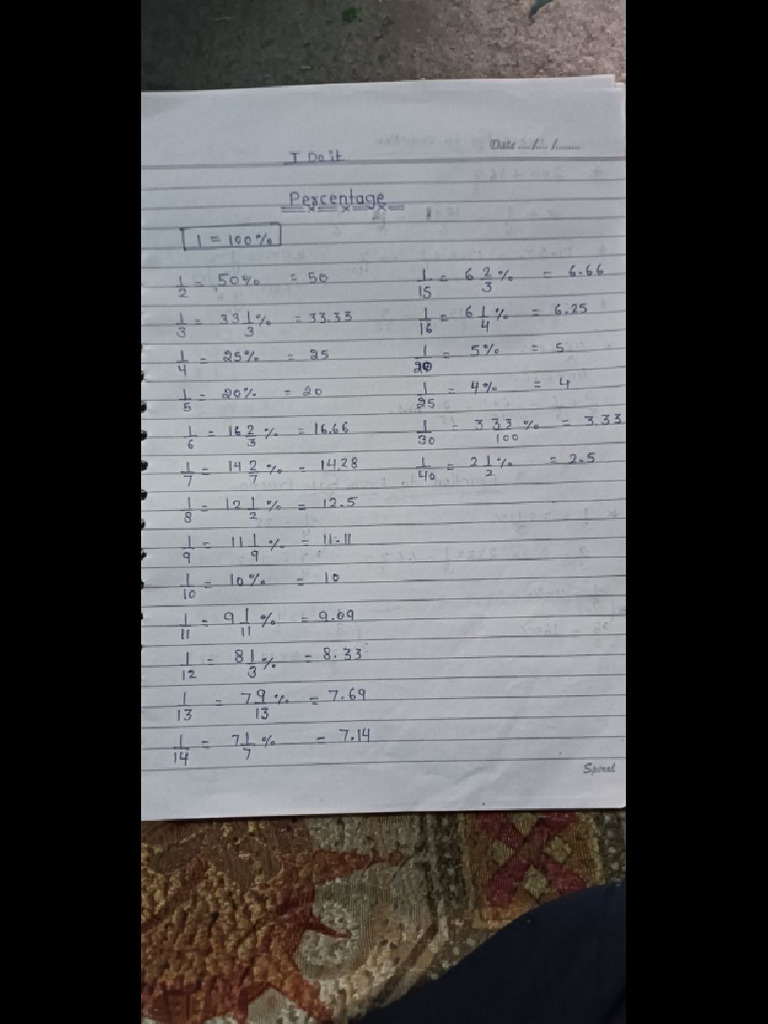 Date .../.../......
I Do it
Percentage
1 = 100%
1/2 = 50% = 50
1/3 = 33 1/3 % = 33.33
1/4 = 25% = 25
1/5 = 20% = 20
1/6 = 16 2/3 % = 16.66
1/7 = 14 2/7 % = 14.28
1/8 = 12 1/2 % = 12.5
1/9 = 11 1/9 % = 11.11
1/10 = 10% = 10
1/11 = 9 1/11 % = 9.09
1/12 = 8 1/3 % = 8.33
1/13 = 7 9/13 % = 7.69
1/14 = 7 1/7 % = 7.14
1/15 = 6 2/3 % = 6.66
1/16 = 6 1/4 % = 6.25
1/20 = 5% = 5
1/25 = 4% = 4
1/30 = 3 33/100 % = 3.33
1/40 = 2 1/2 % = 2.5
Spiral